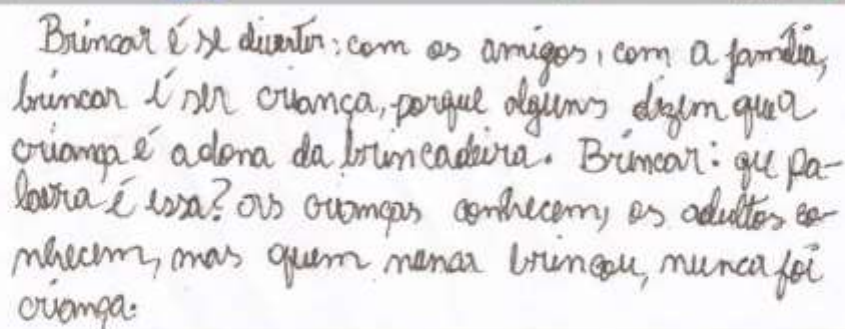 Brincar é se divertir: com os amigos, com a família,
brincar é ser criança, porque alguns dizem que a
criança é a dona da brincadeira. Brincar: que pa-
lavra é essa? as crianças conhecem, os adultos co-
nhecem, mas quem nunca brincou, nunca foi
criança.